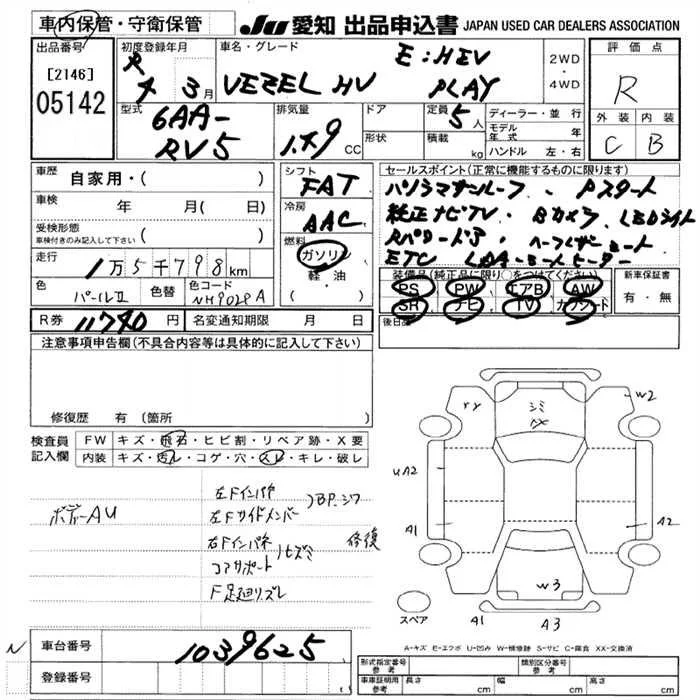 車内保管・守衛保管
JU 愛知 出品申込書 JAPAN USED CAR DEALERS ASSOCIATION
出品番号
[2146]
05142
初度登録年月
R
4 年 3 月
車名・グレード
E:HEV
VEZEL HV PLAY
2WD
・
4WD
評価点
R
外装 内装
C B
型式
6AA-
RV5
排気量
CC
ドア
形状
定員
5人
積載
kg
ディーラー・並行
モデル年式 年
ハンドル 左・右
車歴
自家用・( )
車検
年 月( 日)
受検形態
車検付きのみ記入して下さい ( )
走行
1万5千798km
色
パールⅡ
色替
色コード
シフト
FAT
冷房
AAC
燃料
ガソリン
軽・油
( )
セールスポイント(正常に機能するものに限ります)
パノラマサンルーフ、Pスタート
純正ナビTV・Bカメラ LEDライト
ETC
装備品(純正品に限り○をつけてください)
PS PW エアB AW
SR ナビ TV カワシート
新車保証書
有・無
後日品
R券 11740円
名変通知期限 月 日
注意事項申告欄(不具合内容等は具体的に記入して下さい)
修復歴 有(箇所
検査員
記入欄
FW キズ・飛石・ヒビ割・リペア跡・X要
内装 キズ・汚レ・コゲ・穴・スレ・キレ・破レ
ボデーAU
左Fインパネ
左Fサイドメンバー
BP.シワ
右Fインパネ
コアサポート
ヒズミ
修復
F足廻リズレ
W2
UA2
A1
A2
W3
A1
A3
スペア
A-キズ E-エクボ U-凹み W-補修跡 S-サビ C-腐食 XX-交換済
N
車台番号 1039625
登録番号
形式指定番号
参考
類別区分番号
参考
車庫証明用
参考
長さ cm 幅 cm 高さ cm